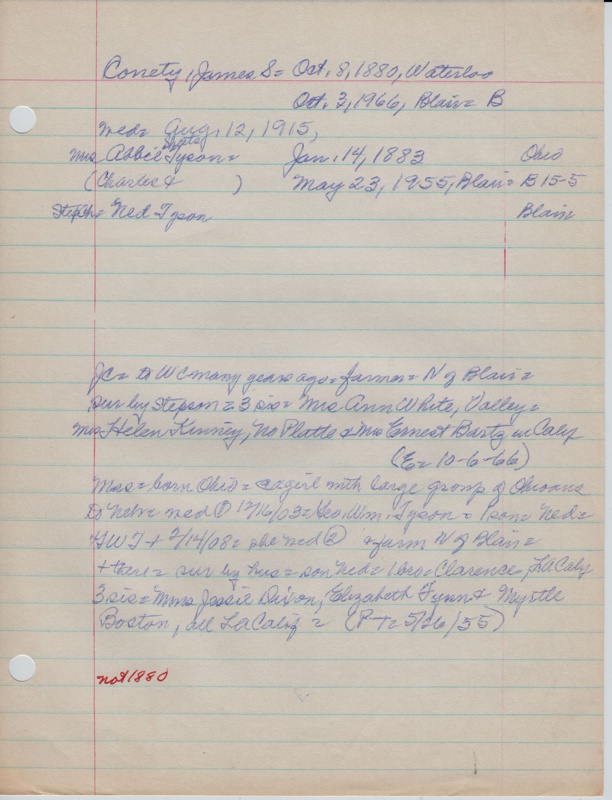 Conety, James S = Oct. 8, 1880, Waterloo
Oct. 3, 1966, Blair = B
med = Aug. 12, 1915,
Mrs Abbie Tyson = Jan. 14, 1883 Ohio
(Charles & ) May 23, 1955, Blair = B 15-5
Steph = Ned Tyson Blair
JC = to WC many years ago = farmer = N of Blair =
sur by stepson = 3 sis = Mrs Ann White, Valley =
Mrs Helen Kenney, No Platte & Mrs Ernest Bartz in Calif
(E = 10-6-66)
Mrs = born Ohio = as girl with large group of Ohioans
to Neb = med ① 12/16/03 = Geo. Wm. Tyson = 1 son = Ned =
GWT + 2/14/08 = she med ② & farm N of Blair =
+ there = sur by hus = son Ned = 1 bro = Clarence, LA Calif
3 sis = Mmes Jessie Dixon, Elizabeth Flynn & Myrtle
Boston, all LA Calif = (PT = 5/26/55)
not 1880